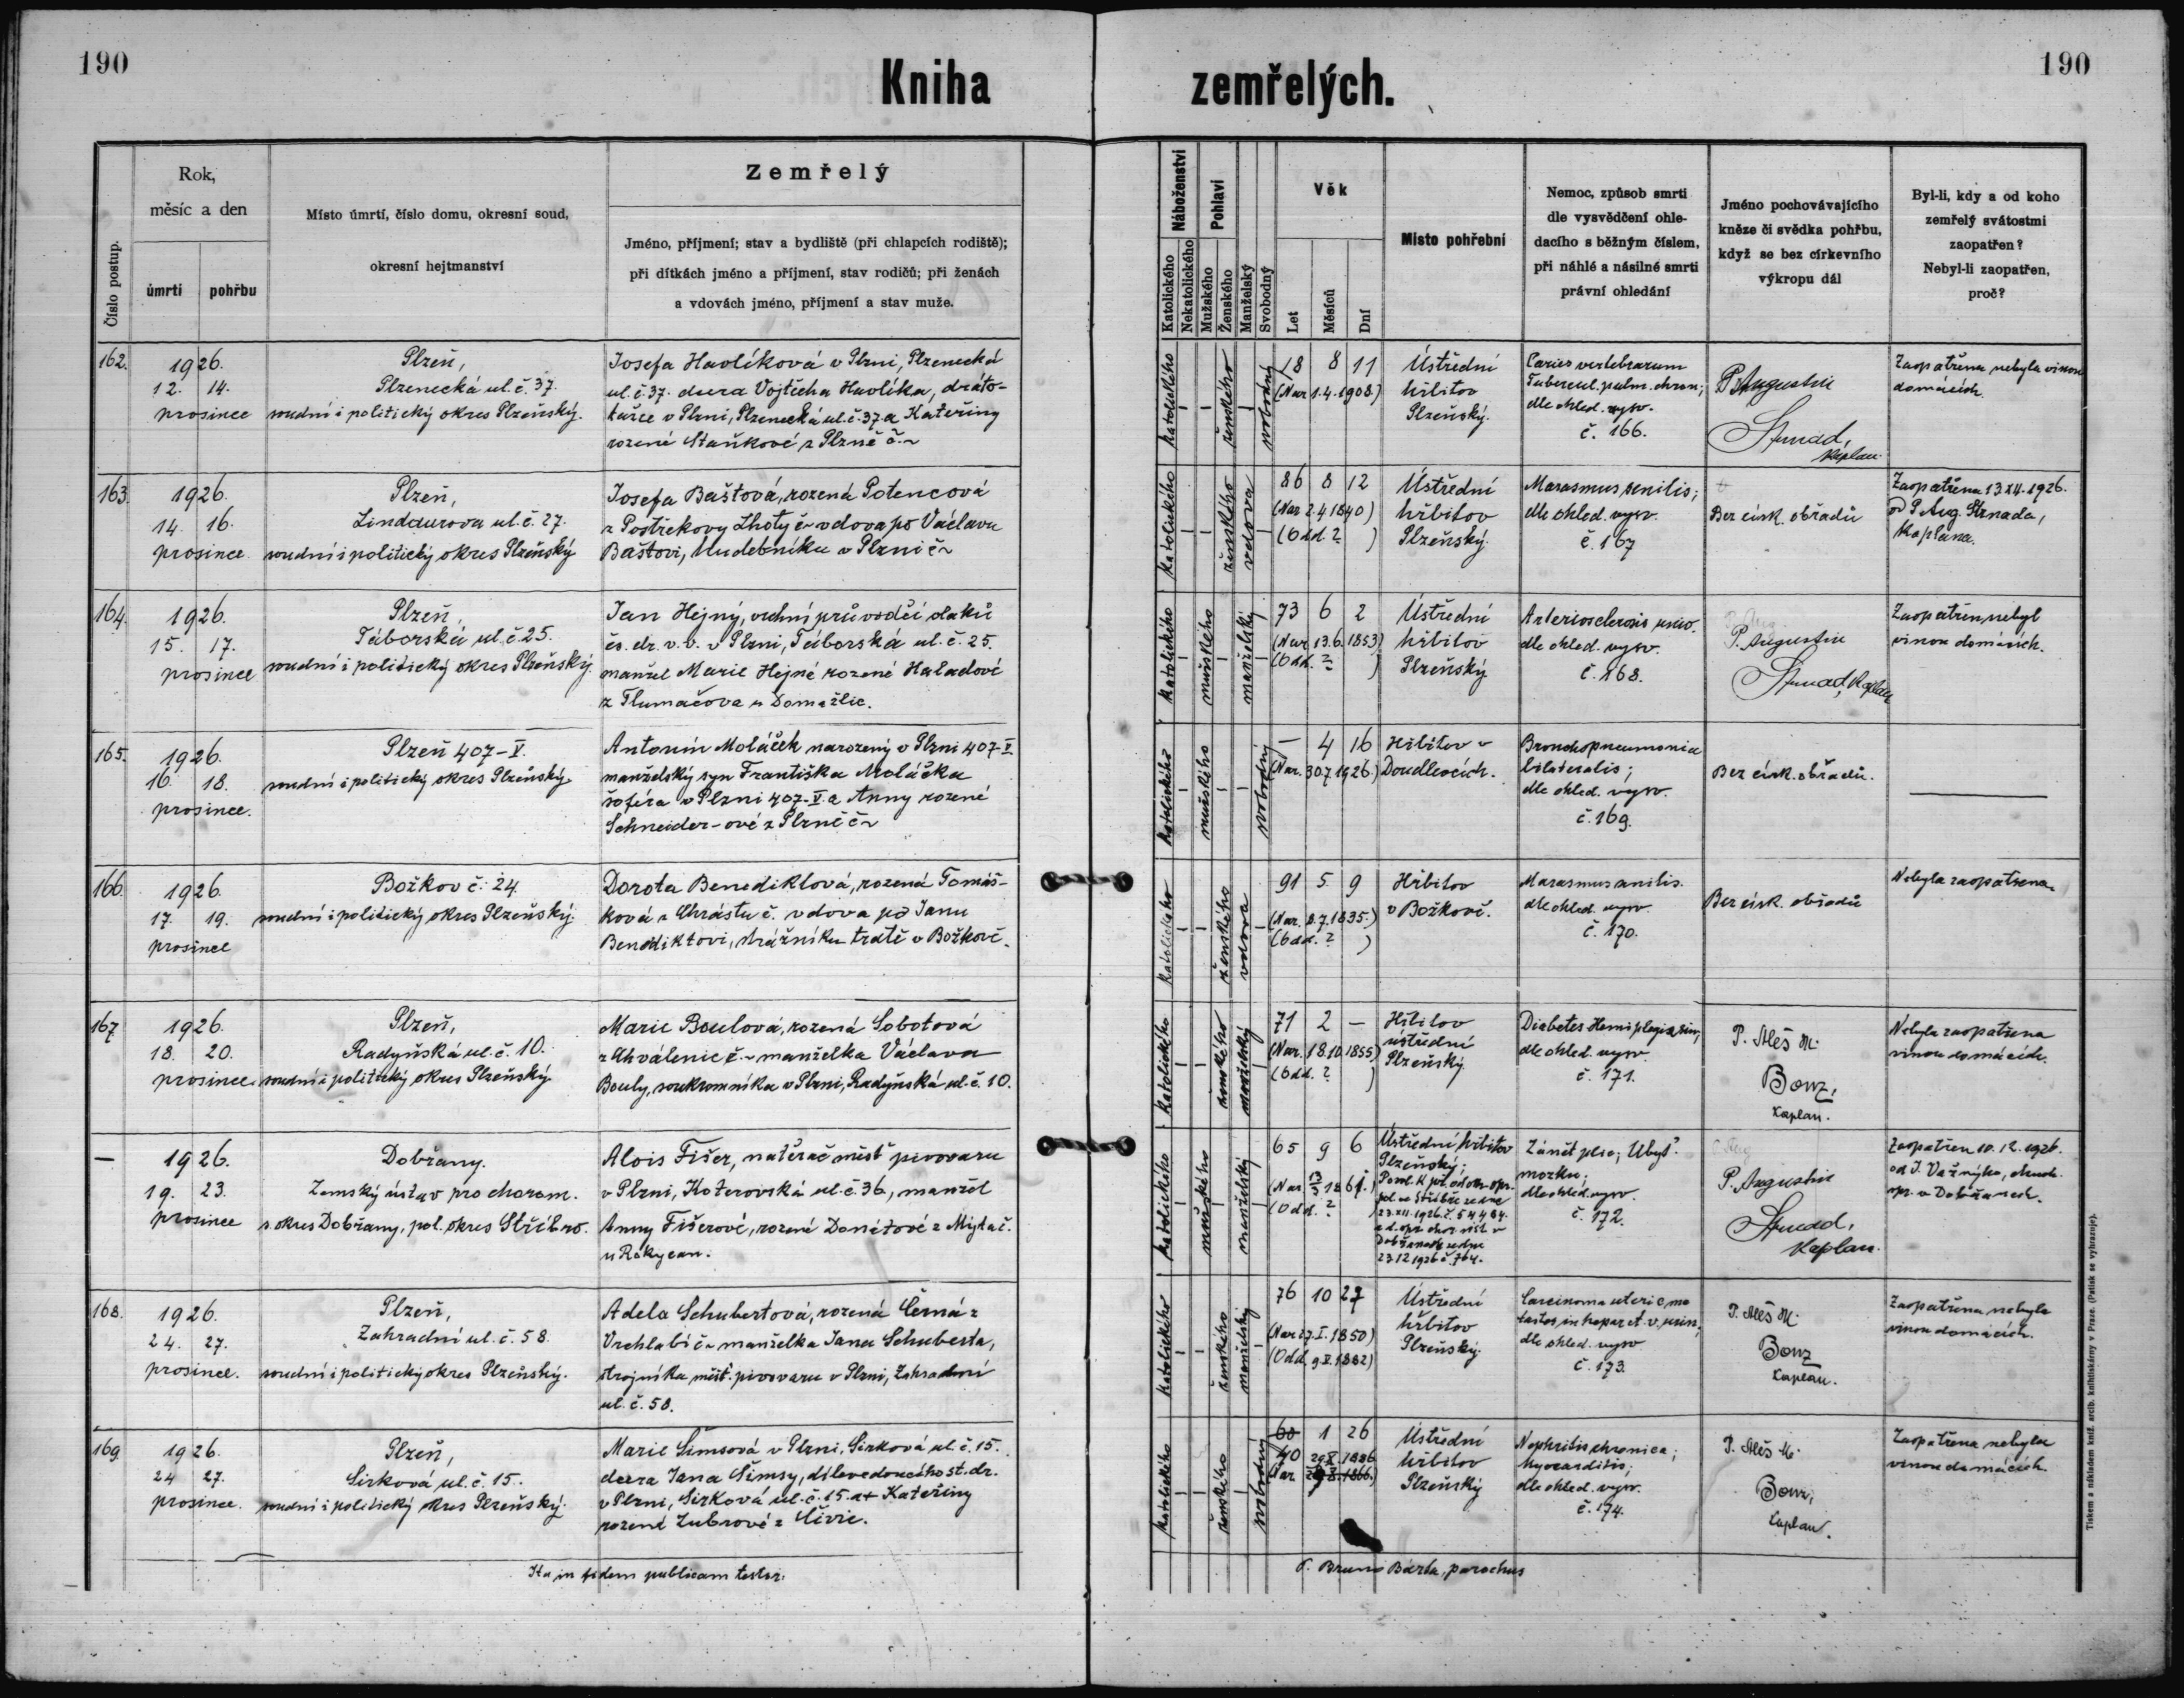 190
Kniha
zemřelých.
190
Číslo postup.
Rok,
měsíc a den
úmrtí
pohřbu
Místo úmrtí, číslo domu, okresní soud,
okresní hejtmanství
Zemřelý
Jméno, příjmení; stav a bydliště (při chlapcích rodiště);
při dítkách jméno a příjmení, stav rodičů; při ženách
a vdovách jméno, příjmení a stav muže.
Náboženství
Katolického
Nekatolického
Pohlaví
Mužského
Ženského
Manželský
Svobodný
Věk
Let
Měsíců
Dní
Místo pohřební
Nemoc, způsob smrti
dle vysvědčení ohle-
dacího s běžným číslem,
při náhlé a násilné smrti
právní ohledání
Jméno pochovávajícího
kněze či svědka pohřbu,
když se bez církevního
výkropu dál
Byl-li, kdy a od koho
zemřelý svátostmi
zaopatřen?
Nebyl-li zaopatřen,
proč?
162.
1926.
12. 14.
prosince
Plzeň,
Plzenecká ul. č. 37.
soudní i politický okres Plzeňský.
Josefa Havlíková v Plzni, Plzenecká
ul. č. 37. dcera Vojtěcha Havlíka, dráto-
v Plzni, Plzenecká ul. č. 37 a Kateřiny
rozené Staňkové z Plzně č. ~
katolického
ženského
svobodný
18 8 11
(Nar. 1.4.1908.)
Ústřední
hřbitov
Plzeňský.
Caries vertebrarum
Tubercul. pulm. chron.;
dle ohled. vysv.
č. 166.
P. Augustin
Strnad,
kaplan.
Zaopatřena nebyla vinou
domácích.
163.
1926.
14. 16.
prosince
Plzeň,
Lindaurova ul. č. 27.
soudní i politický okres Plzeňský
Josefa Baštová, rozená Potencová
z Postřekovy Lhoty č ~ vdova po Václavu
Baštovi, hudebníku v Plzni č ~
katolického
ženského
vdova
86 8 12
(Nar. 2.4.1840)
(Odd. ? )
Ústřední
hřbitov
Plzeňský.
Marasmus senilis;
dle ohled. vysv.
č. 167
Bez círk. obřadů
Zaopatřena 13.XII.1926.
od P. Aug. Strnada,
kaplana.
164.
1926.
15. 17.
prosince
Plzeň,
Táborská ul. č. 25.
soudní i politický okres Plzeňský.
Jan Hejný, vrchní průvodčí vlaků
čs. dr. v. v. v Plzni, Táborská ul. č. 25.
manžel Marie Hejné rozené Haladové
z Tlumačova u Domažlic.
katolického
mužského
manželský
73 6 2
(Nar. 13.6.1853)
(Odd. ? )
Ústřední
hřbitov
Plzeňský
Arteriosclerosis univ.
dle ohled. vysv.
č. 168.
P. Augustin
Strnad, kaplan
Zaopatřen nebyl
vinou domácích.
165.
1926.
16. 18.
prosince.
Plzeň 407-V.
soudní i politický okres Plzeňský.
Antonín Moláček narozený v Plzni 407-V.
manželský syn Františka Moláčka
šoféra v Plzni 407-V. a Anny rozené
Schneider-ové z Plzně č ~
katolického
mužského
svobodný
— 4 16
(Nar. 30.7.1926.)
Hřbitov v
Doudlevcích.
Bronchopneumonia
bilateralis;
dle ohled. vysv.
č. 169.
Bez círk. obřadů.
166.
1926.
17. 19.
prosince
Božkov č. 24
soudní i politický okres Plzeňský.
Dorota Benediktová, rozená Tomáš-
ková z Chrástu č. vdova po Janu
Benediktovi, strážníku tratě v Božkově.
katolického
ženského
vdova
91 5 9
(Nar. 8.7.1835.)
(Odd. ? )
Hřbitov
v Božkově.
Marasmus senilis.
dle ohled. vysv.
č. 170.
Bez círk. obřadů
Nebyla zaopatřena.
167
1926.
18. 20.
prosince.
Plzeň,
Radyňská ul. č. 10.
soudní i politický okres Plzeňský.
Marie Boulová, rozená Sobotová
z Chválenic č. ~ manželka Václava
Bouly, soukromníka v Plzni, Radyňská ul. č. 10.
katolického
ženského
manželský
71 2 —
(Nar. 18.10.1855)
(Odd. ? )
Hřbitov
ústřední
Plzeňský
Diabetes Hemiplegia sin.;
dle ohled. vysv.
č. 171.
P. Aleš M.
Bonz,
kaplan.
Nebyla zaopatřena
vinou domácích.
—
1926.
19. 23.
prosince
Dobřany.
Zemský ústav pro chorom.
s. okres Dobřany, pol. okres Stříbro.
Alois Fišer, natěrač měšť. pivovaru
v Plzni, Koterovská ul. č. 36, manžel
Anny Fišerové, rozené Donátové z Mýta č.
u Rokycan.
katolického
mužského
manželský
65 9 6
(Odd. ?
Ústřední hřbitov
Plzeňský;
23.12.1926 č. 704.
Zánět plic; Úbyť
mozku;
dle ohled. vysv.
č. 172.
P. Augustin
Strnad,
kaplan.
Zaopatřen 10.12.1926.
v Dobřanech.
168.
1926.
24. 27.
prosince.
Plzeň,
Zahradní ul. č. 58.
soudní i politický okres Plzeňský.
Adela Schubertová, rozená Černá z
Vrchlabí č ~ manželka Jana Schuberta,
strojníka měšť. pivovaru v Plzni, Zahradní
ul. č. 58.
katolického
ženského
manželský
76 10 27
(Nar. 27.I.1850)
(Odd. 9.V.1882)
Ústřední
hřbitov
Plzeňský.
Carcinoma uteri
dle ohled. vysv
č. 173.
P. Aleš M.
Bonz
kaplan.
Zaopatřena nebyla
vinou domácích.
169
1926.
24 27.
prosince.
Plzeň,
Sirková ul. č. 15.
soudní i politický okres Plzeňský.
Marie Šimsová v Plzni, Sirková ul. č. 15.
dcera Jana Šimsy, dílovedoucího st. dr.
v Plzni, Sirková ul. č. 15. a + Kateřiny
rozené Zubrové z Čivic.
katolického
ženského
svobodný
60 1 26
40
Ústřední
hřbitov
Plzeňský
Nephritis chronica;
Myocarditis;
dle ohled. vysv.
č. 174.
P. Aleš M.
Bonz,
kaplan.
Zaopatřena nebyla
vinou domácích.
Ita in fidem publicam testor:
P. Bruno Bárta, parochus
Tiskem a nákladem kníž. arcib. knihtiskárny v Praze. (Patisk se vyhrazuje).